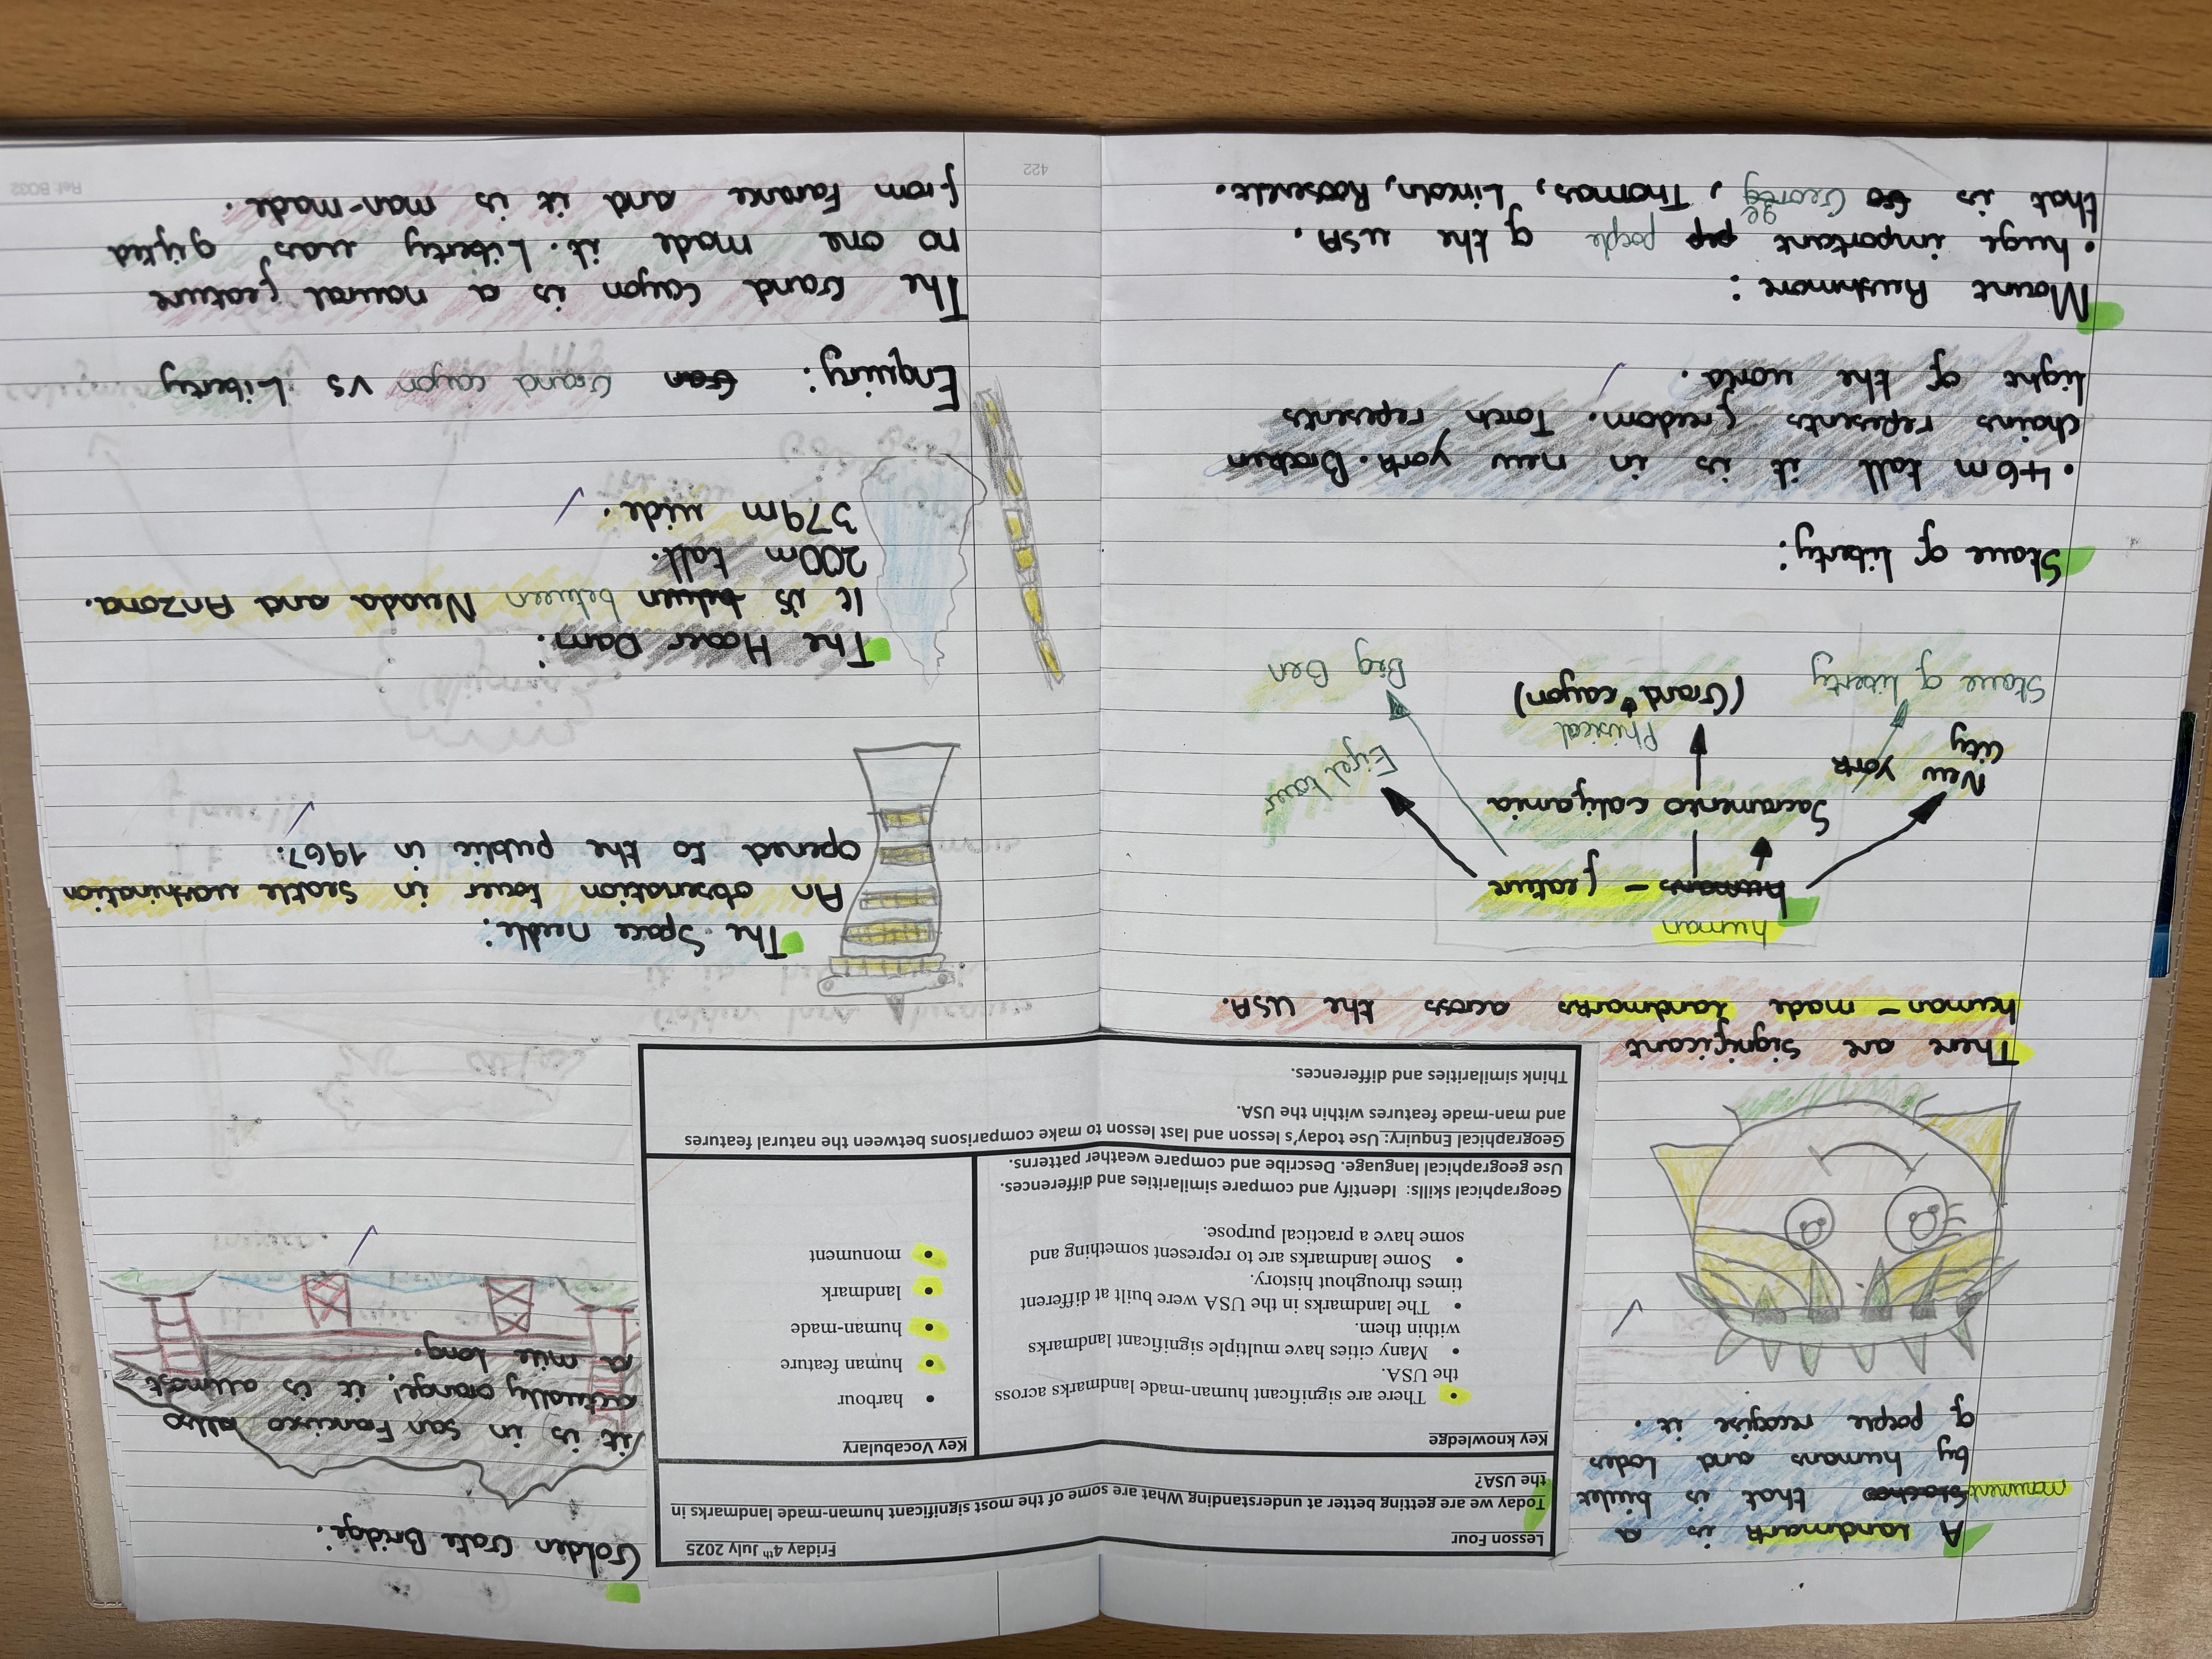 A landmark is a
monument that is biulet
by humans and lodes
of poeple recogise it.
There are significant
human-made landmarks across the USA.
human
humans - feature
New York
City
Sacramento califarnia
Eifel tower
Staue of liberty
Phisical
(Grand cayon)
Big Ben
Staue of liberty:
• 46m tall it is in new york. Brocken
chains repesents freedom. Torch repesents
light of the world.
Mount Rushmore:
• huge important pep poeple of the USA.
that is Geo Georege, Thomas, Lincoln, Roosevelt.
Lesson Four
Friday 4th July 2025
Today we are getting better at understanding What are some of the most significant human-made landmarks in
the USA?
Key knowledge
• There are significant human-made landmarks across
the USA.
• Many cities have multiple significant landmarks
within them.
• The landmarks in the USA were built at different
times throughout history.
• Some landmarks are to represent something and
some have a practical purpose.
Geographical skills: Identify and compare similarities and differences.
Use geographical language. Describe and compare weather patterns.
Key Vocabulary
• harbour
• human feature
• human-made
• landmark
• monument
Geographical Enquiry: Use today's lesson and last lesson to make comparisons between the natural features
and man-made features within the USA.
Think similarities and differences.
Golden Gate Bridge:
it is in san Francisco allso
actually orange! it is allmost
a mile long.
The Space needle:
An observation tower in Seatle washination
opened to the public in 1967.
The Hoover Dam:
It is between Nevada and Arizona.
200m tall.
379m wide.
Enquiry: Gran Grand cayon vs Liberty
The Grand Cayon is a natural feature
no one made it. Liberty was gifted
from Farance and it is man-made.
422
Ref: BC32